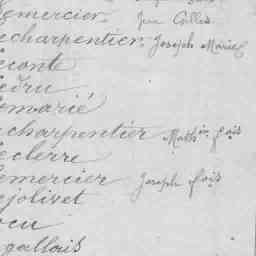 emercier. Jean Gilles
echarpentier. Joseph Marie
econte
edru
emarié
echarpentier Math^in f^ois
eclerre
emercier Joseph f^ois
ejolivet
ocu
egallais